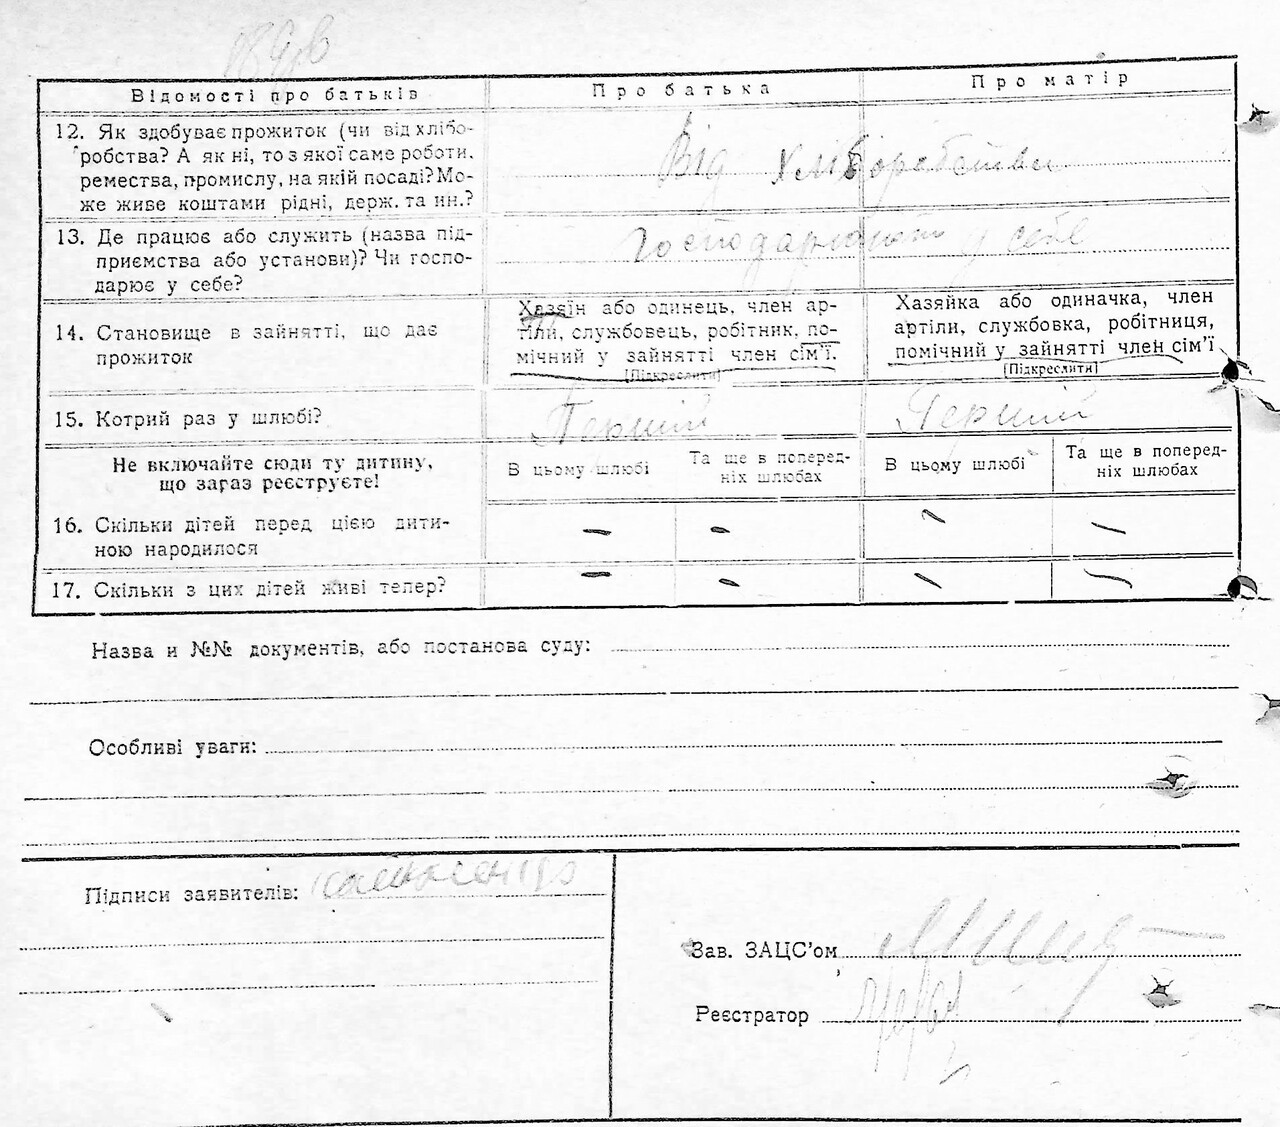 Відомості про батьків
Про батька
Про матір
12. Як здобуває прожиток (чи від хлібо-
робства? А як ні, то з якої саме роботи,
ремества, промислу, на якій посаді? Мо-
же живе коштами рідні, держ. та ин.?
Від хліборобства
13. Де працює або служить (назва під-
приємства або установи)? Чи госпо-
дарює у себе?
Господарюють у себе
14. Становище в зайнятті, що дає
прожиток
Хазяїн або одинець, член ар-
тіли, службовець, робітник, по-
мічний у зайнятті член сім'ї.
[Підкреслити]
Хазяйка або одиначка, член
артіли, службовка, робітниця,
помічний у зайнятті член сім'ї
[Підкреслити]
15. Котрий раз у шлюбі?
Перший
Перший
Не включайте сюди ту дитину,
що зараз реєструєте!
В цьому шлюбі
Та ще в поперед-
ніх шлюбах
В цьому шлюбі
Та ще в поперед-
ніх шлюбах
16. Скільки дітей перед цією дити-
ною народилося
— — — —
17. Скільки з цих дітей живі тепер?
— — — —
Назва и №№ документів, або постанова суду:
Особливі уваги:
Підписи заявителів:
Зав. ЗАЦС'ом
Реєстратор